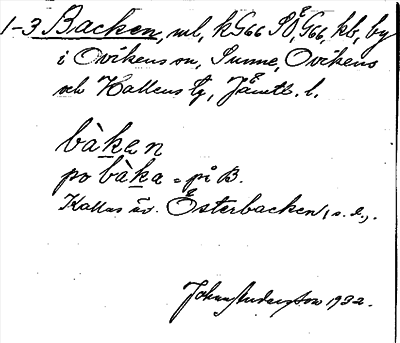 1-3 Backen, ml, kG66 SÖ, G66, kb, by
i Ovikens sn, Sunne, Ovikens
och Hallens tg, Jämtl. l.
bàkan
po bàka = på B.
Kallas äv. Österbacken, s.d.,.
John Anderzon 1932.